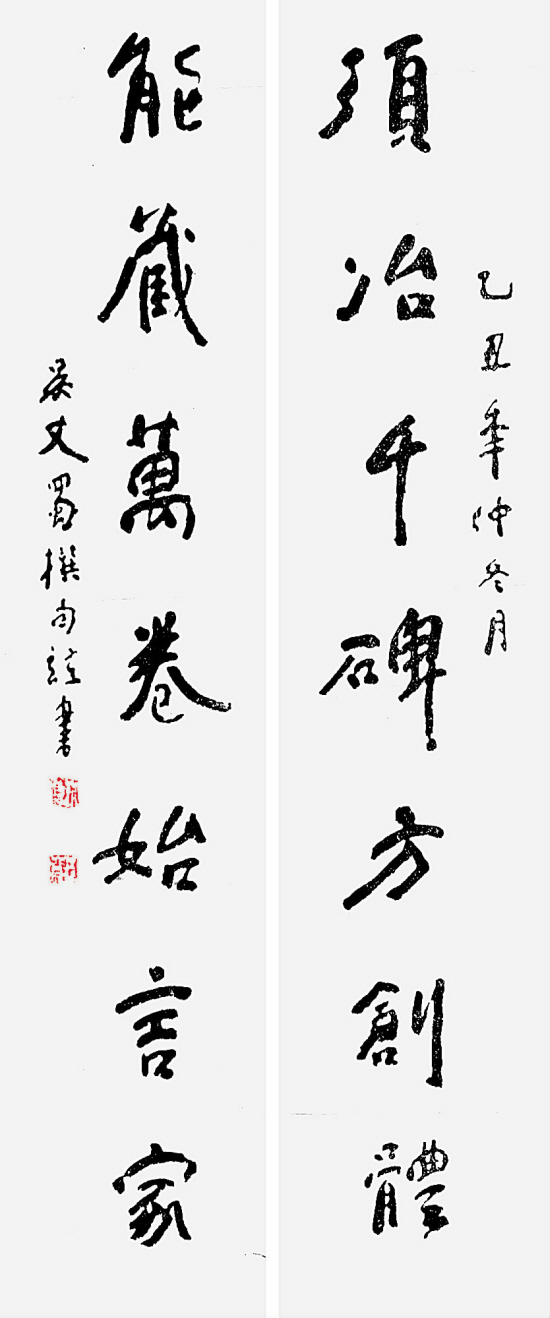 乙丑年仲冬月
須冶千碑方創體
能藏萬卷始言家
吴丈蜀撰句并書